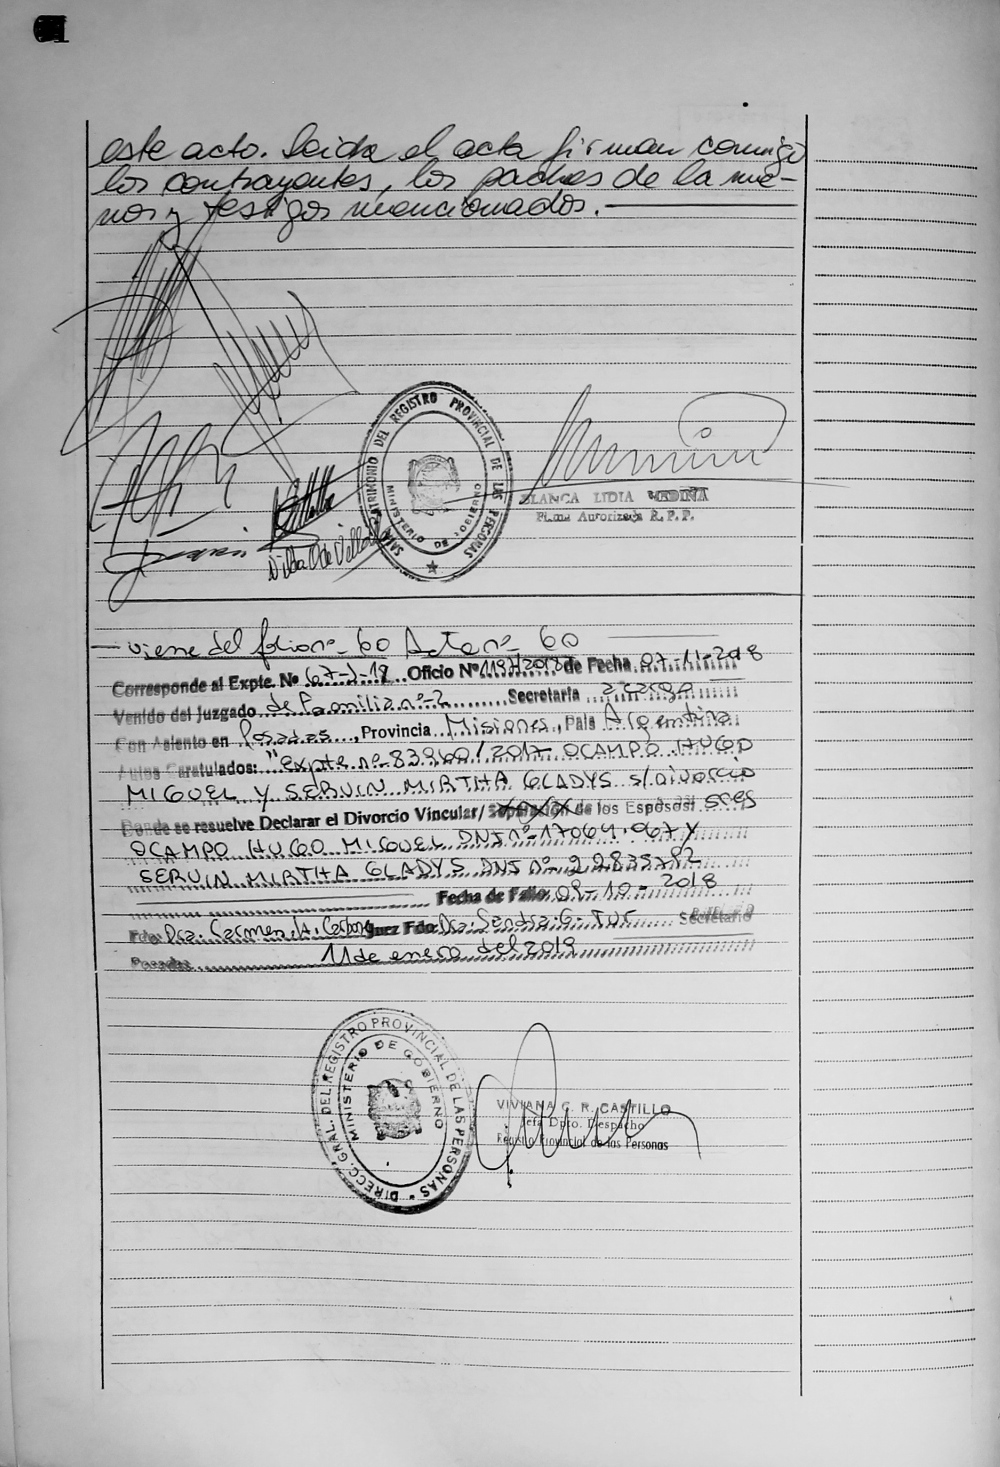 este acto. Leida el acta firman conmigo
los contrayentes, los padres de la me-
nor y testigos mencionados.
SALA MATRIMONIO DEL REGISTRO PROVINCIAL DE LAS PERSONAS
MINISTERIO DE GOBIERNO
BLANCA LIDIA MEDINA
Firma Autorizada R. P. P.
viene del folio nº 60 Acta nº 60
Corresponde al Expte. Nº 67-J-18 Oficio Nº 1197/2018 de Fecha 07-11-2018
Venido del Juzgado de Familia nº 2 Secretaria a cargo
Con Asiento en Posadas, Provincia Misiones, Pais Argentina
Autos Caratulados: "Expte nº 83960/2017 OCAMPO HUGO
MIGUEL Y SERVIN MIRTHA GLADYS s/divorcio
Donde se resuelve Declarar el Divorcio Vincular/ Separación de los Esposos: sres
OCAMPO HUGO MIGUEL DNI nº 17064.967 Y
SERVIN MIRTHA GLADYS DNI nº 22835782
Fecha de Fallo: 08-10-2018
Fdo: Dra. Carmen H. Juez Fdo: Dra. Sandra G. Secretario
Posadas 11 de enero del 2019
DIRECC. GRAL. DEL REGISTRO PROVINCIAL DE LAS PERSONAS
MINISTERIO DE GOBIERNO
VIVIANA G. R. CASTILLO
Jefe Dpto. Despacho
Registro Provincial de las Personas